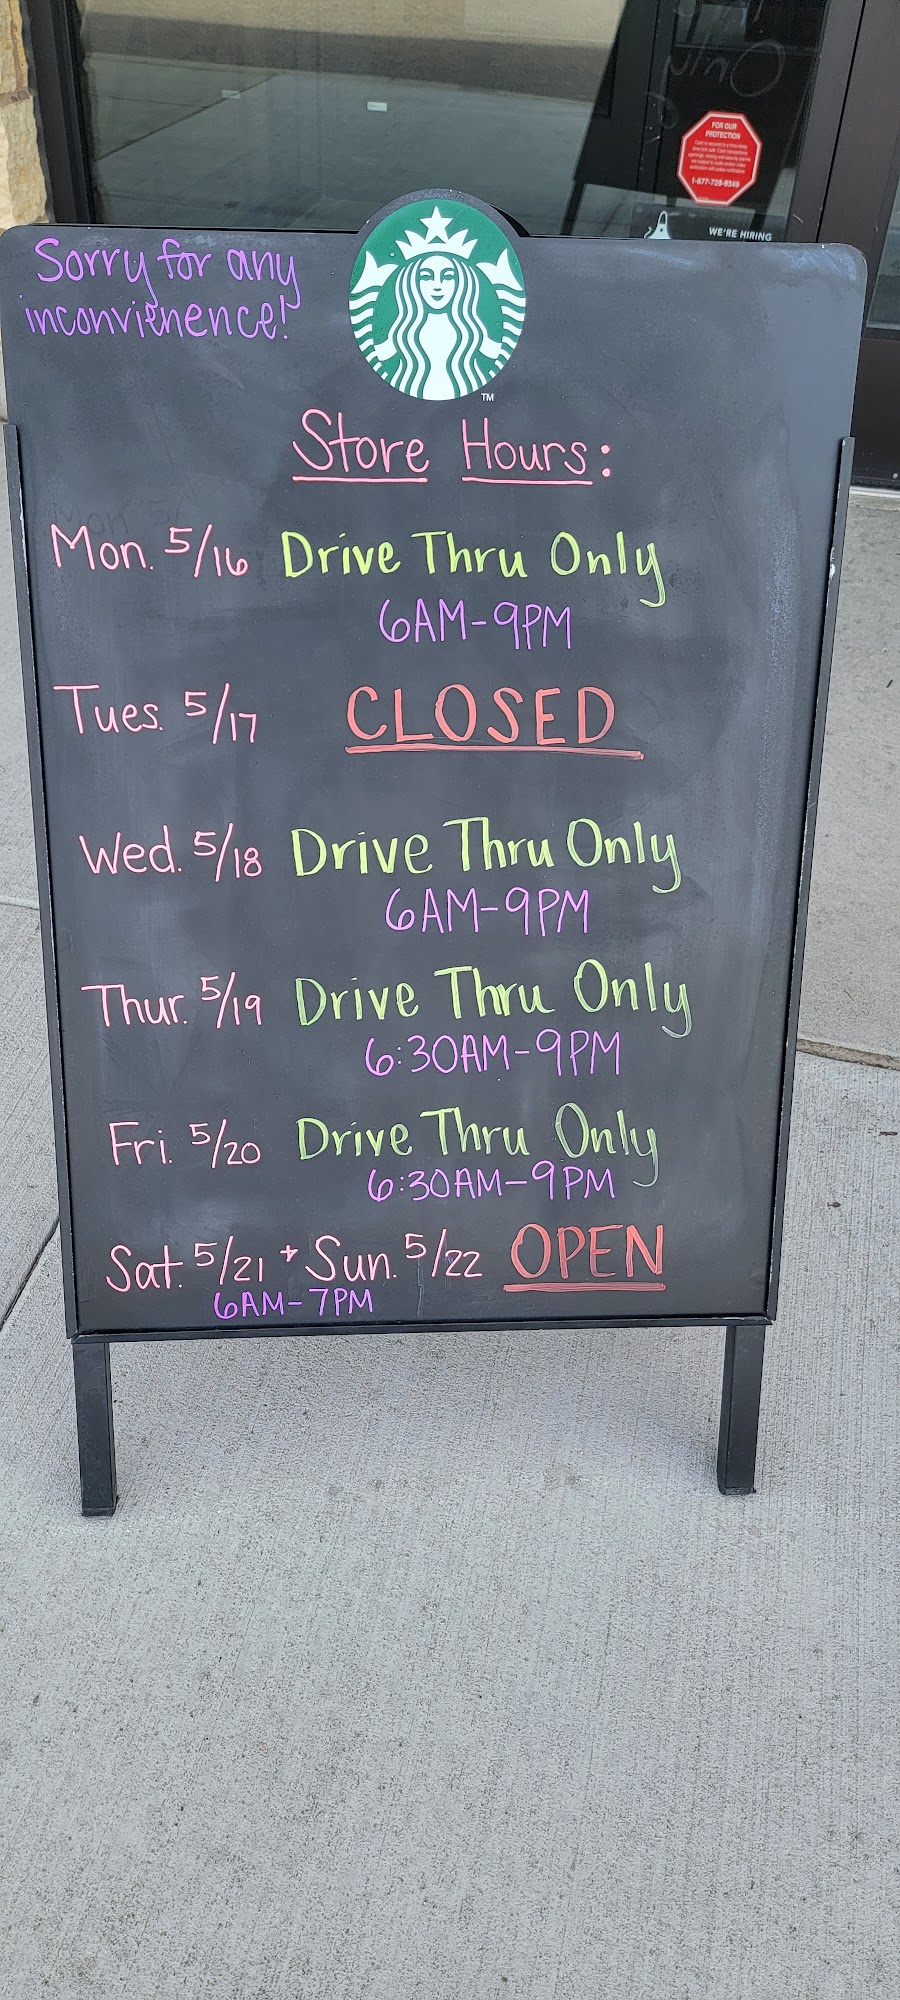 Only
FOR OUR
PROTECTION
1-877-728-9349
WE'RE HIRING
Sorry for any
inconvienence!
TM
Store Hours:
Mon. 5/16 Drive Thru Only
6AM-9PM
Tues. 5/17 CLOSED
Wed. 5/18 Drive Thru Only
6AM-9PM
Thur. 5/19 Drive Thru Only
6:30AM-9PM
Fri. 5/20 Drive Thru Only
6:30AM-9PM
Sat. 5/21 + Sun. 5/22 OPEN
6AM-7PM